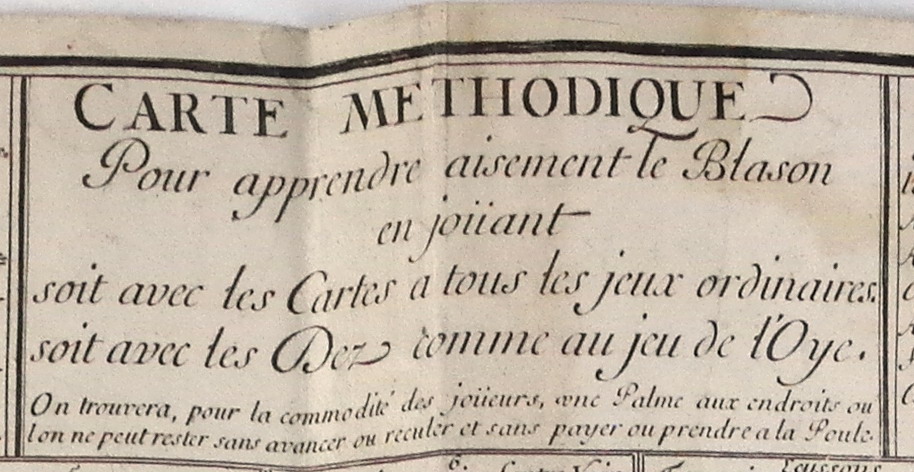 CARTE METHODIQUE
Pour apprendre aisement le Blason
en joüant
soit avec les Cartes a tous les jeux ordinaires.
soit avec les Dez comme au jeu de l'Oye.
On trouvera, pour la commodité des joüeurs, une Palme aux endroits ou
lon ne peut rester sans avancer ou reculer et sans payer ou prendre a la Poule.
6.